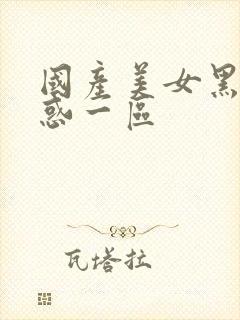 國產美女黑
惑一區
瓦塔拉